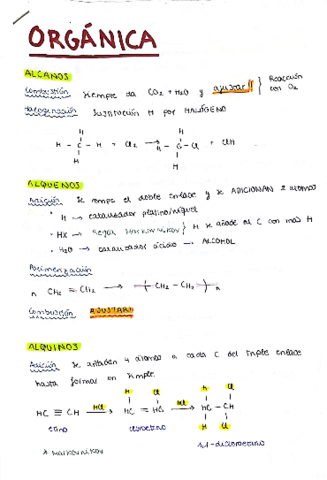 ORGÁNICA
ALCANOS
Combustión siempre da CO2 + H2O y ajustar!! } Reacción con O2
Halogenación Sustitución H por HALÓGENO
H
H - C - H + Cl2 → H - C - Cl + ClH
H
ALQUENOS
Adición Se rompe el doble enlace y se ADICIONAN 2 átomos
• H → catalizador platino/níquel
• HX → Regla Markovnikov } H se añade al C con más H
• H2O → catalizador ácido → ALCOHOL
Polimerización
n CH2 = CH2 → ( CH2 - CH2 )n
Combustión AJUSTAR!
ALQUINOS
Adición Se añaden 4 átomos a cada C del triple enlace
hasta formar en simple.
H Cl H Cl
HC ≡ CH → HCl HC = CH → HCl HC - CH
H Cl
etino cloroeteno 1,1-dicloroetano
* Markovnikov